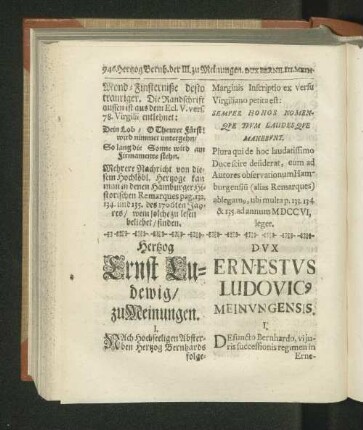 946 Herzog Bernh. der III. zu Meinungen.
Mond-Finsterniße desto
trauriger. Die Randschrift
aussen ist aus dem Ecl. V. vers.
78. Virgilii entlehnet:
Dein Lob / O Theurer Fürst!
wird nimmer untergehen/
So lang die Sonne wird am
Firmamente stehen.
Mehrere Nachricht von die-
sem Hochlöbl. Hertzoge kan
man in denen Hamburger Hi-
storischen Remarques pag. 132.
134. und 135. des 1706ten Jah-
res / wem solche zu lesen
beliebet / finden.
Hertzog
Ernst Lu-
dewig /
zu Meinungen.
I.
NAch Hochseeligen Abster-
ben Hertzog Bernhards
folge-
Marginis Inscriptio ex versu
Virgiliano petita est:
SEMPER HONOR NOMEN-
QVE TVVM LAUDESQVE
MANEBVNT.
Plura qui de hoc laudatissimo
Duce scire desiderat, eum ad
Autores observationum Ham-
burgensiũ (alias Remarques)
ablegam9, ubi multa p. 133. 134
& 135. ad annum MDCCVI,
leget.
DVX
ERNESTVS
LUDOVIC9
MEINVNGENSIS.
I.
DEfuncto Bernhardo, vi ju-
ris successionis regimen in
Erne-